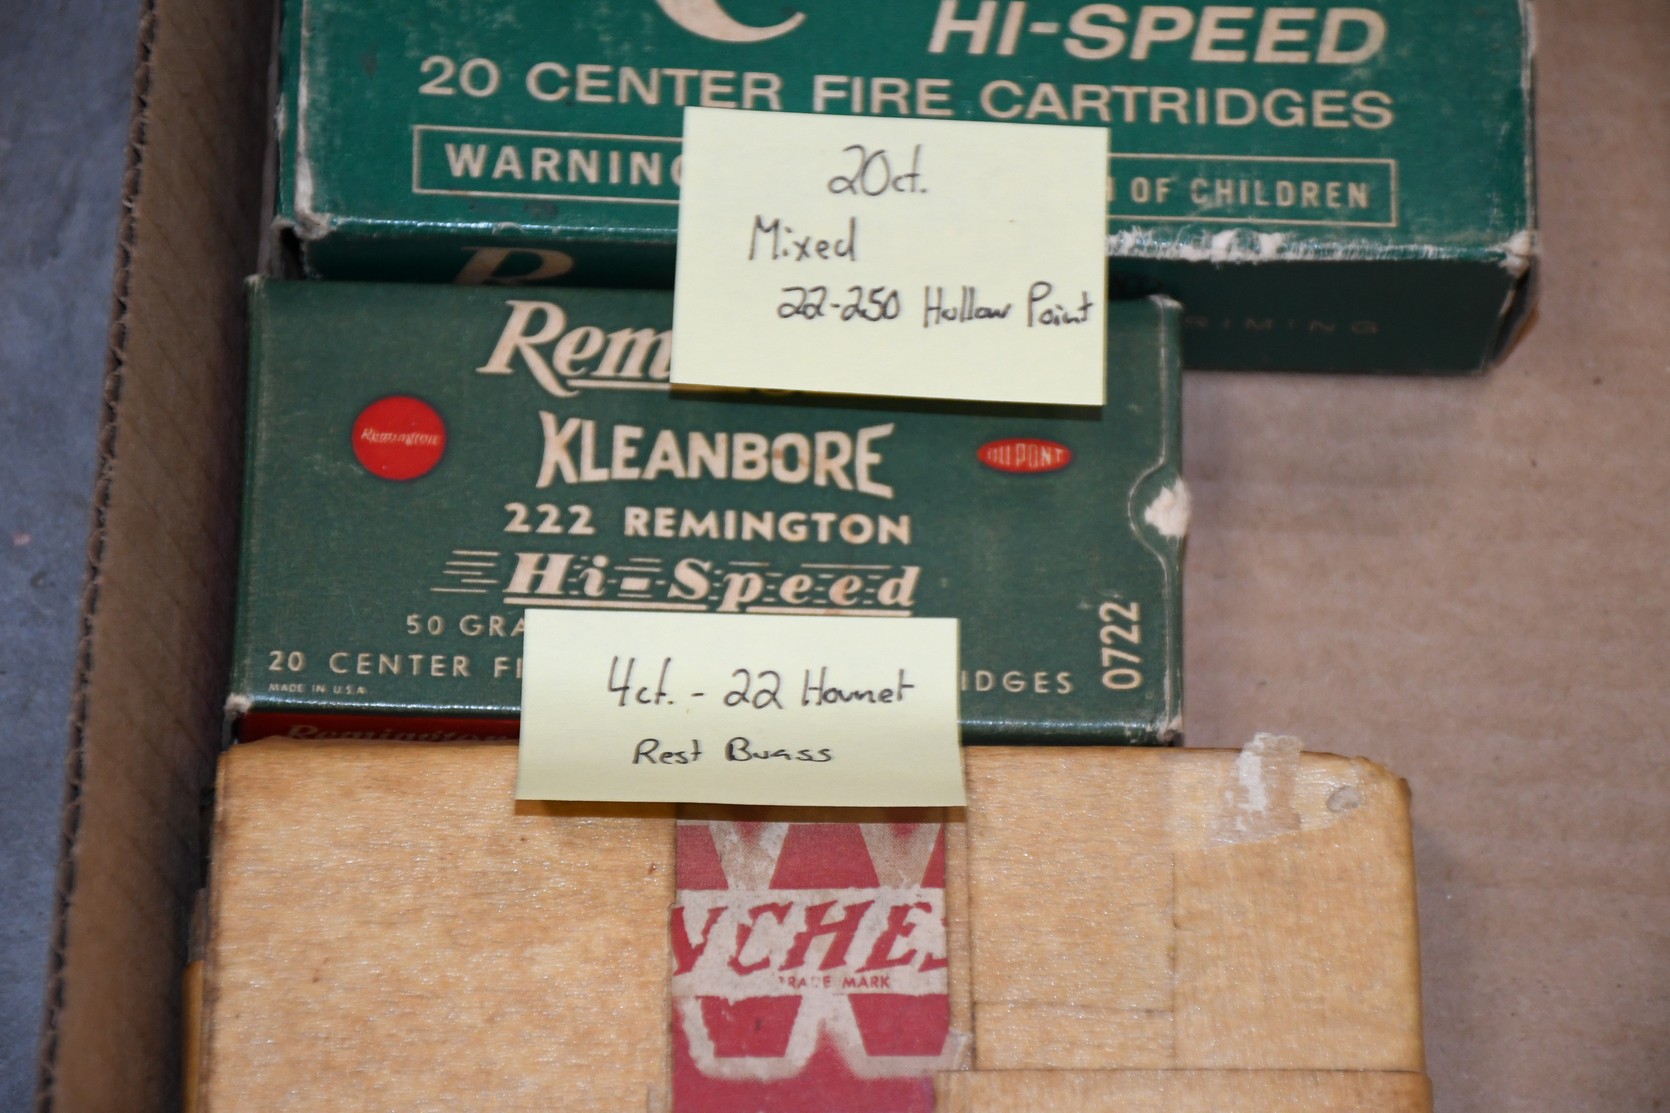 HI-SPEED
20 CENTER FIRE CARTRIDGES
WARNING
OF CHILDREN
20ct.
Mixed
22-250 Hollow Point
RIMING
Rem
Remington
KLEANBORE
DU PONT
222 REMINGTON
Hi-Speed
50 GRA
0722
20 CENTER FI
IDGES
MADE IN U.S.A.
4ct. - 22 Hornet
Rest Brass
Remington
YCHES
TRADE MARK